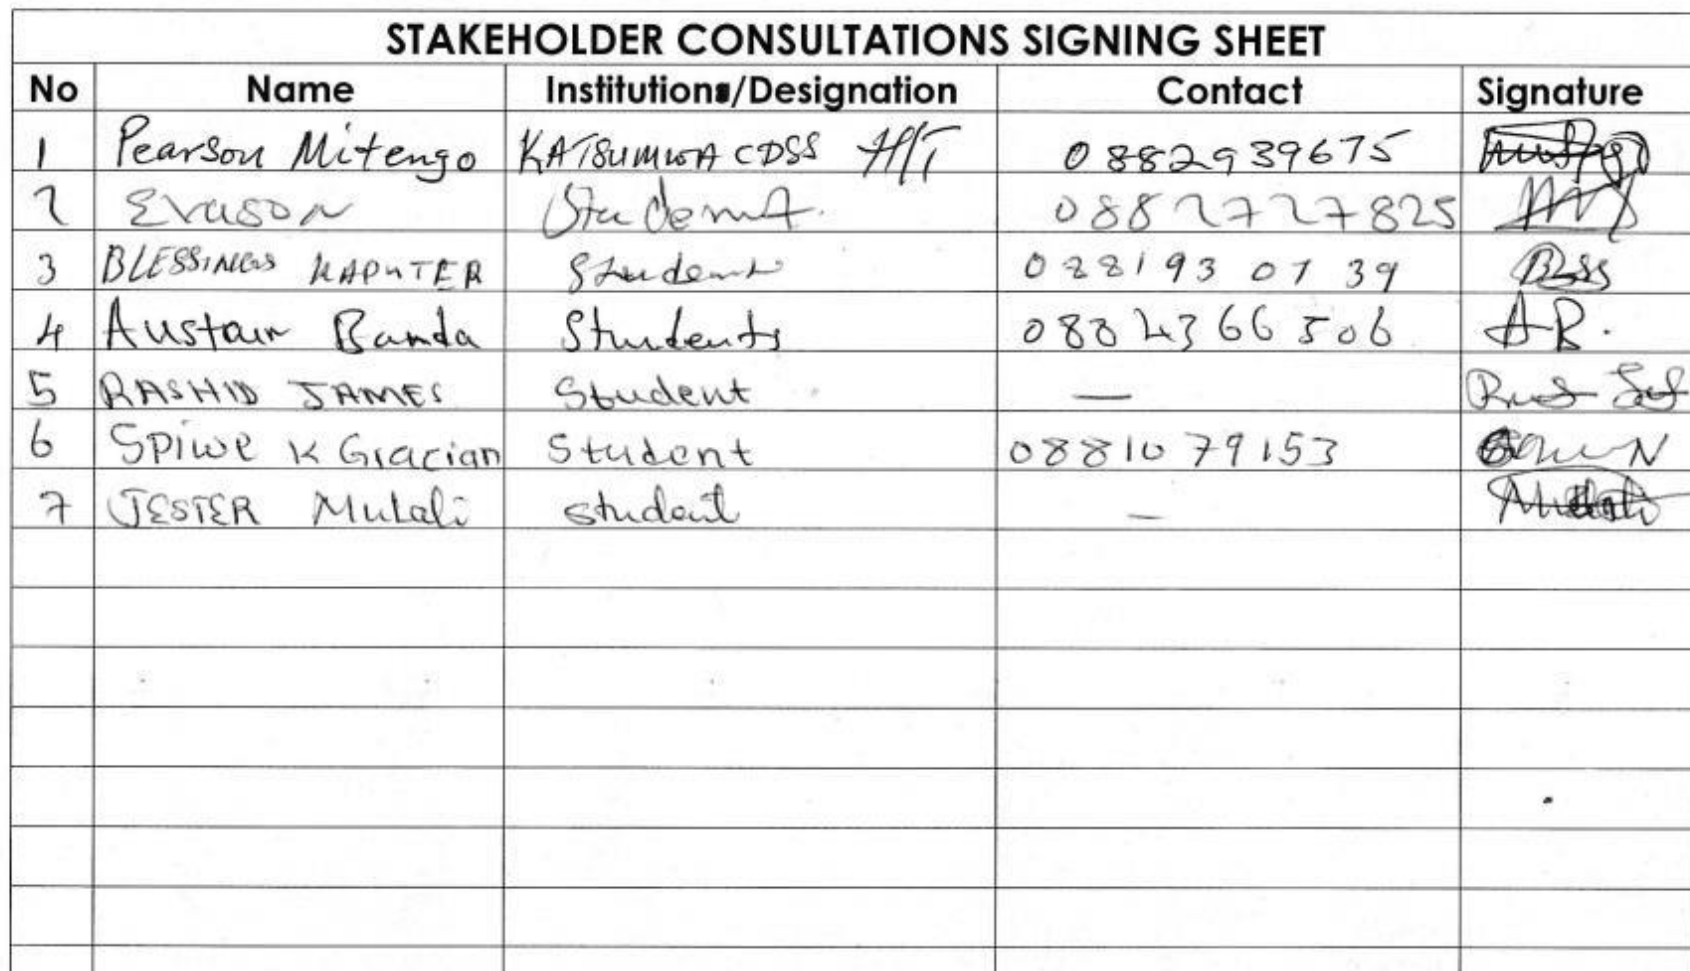 STAKEHOLDER CONSULTATIONS SIGNING SHEET
No Name Institutions/Designation Contact Signature
1 Pearson Mitengo KATSUMWA CDSS H/T 0882939675
2 Evason Student 0882727825
3 BLESSINGS KAPHTER Student 0881930739
4 Austain Banda Students 0884366506 A.B.
5 RASHID JAMES Student —
6 Spiwe K Gracian Student 0881079153
7 JESTER Mulali student —